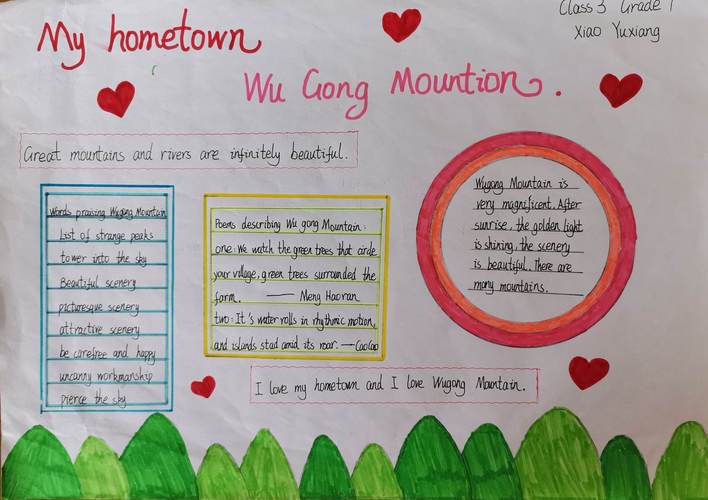 Class 3 Grade 1
Xiao Yuxiang
My hometown
Wu Gong Mountion.
Great mountains and rivers are infinitely beautiful.
Words praising Wugong Mountain
List of strange peaks
tower into the sky
Beautiful scenery
picturesque scenery
attractive scenery
be carefree and happy
uncanny workmanship
pierce the sky
Poems describing Wu gong Mountain:
one: We watch the green trees that circle
your village, green trees surrounded the
farm. —— Meng Haoran
two: It's water rolls in rhythmic motion,
and islands stad amid its roar. —CaoCao
Wugong Mountain is
very magnificent. After
sunrise, the golden light
is shining, the scenery
is beautiful. There are
many mountains.
I love my hometown and I love Wugong Mountain.